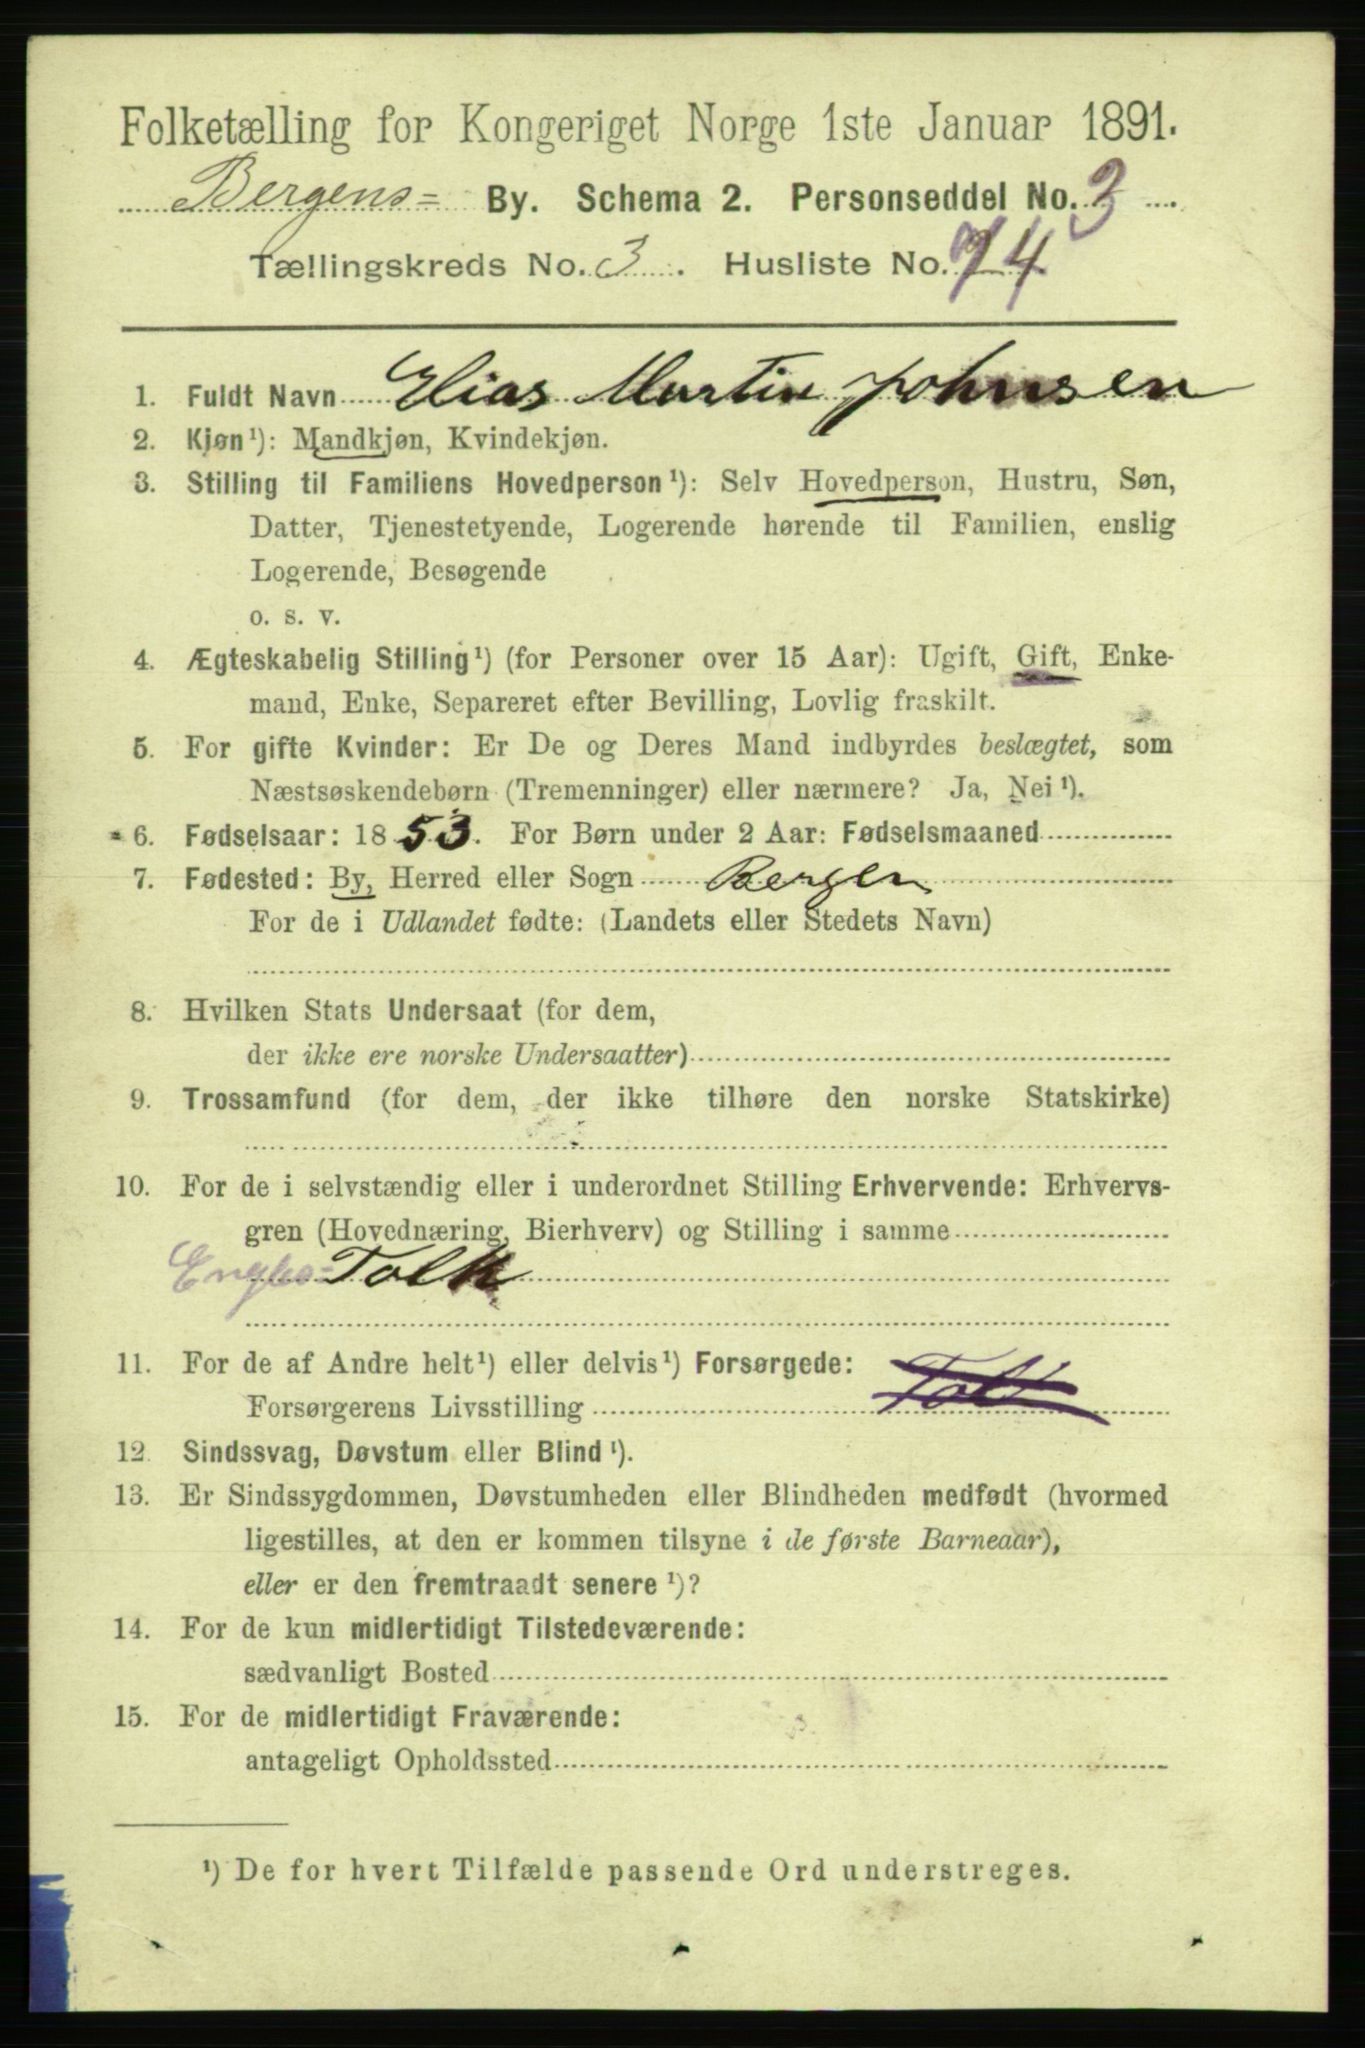 Folketælling for Kongeriget Norge 1ste Januar 1891.
Bergens= By. Schema 2. Personseddel No. 3
Tællingskreds No. 3. Husliste No. 74
1. Fuldt Navn Elias Martin Johnsen
2. Kjøn¹): Mandkjøn, Kvindekjøn.
3. Stilling til Familiens Hovedperson¹): Selv Hovedperson, Hustru, Søn,
Datter, Tjenestetyende, Logerende hørende til Familien, enslig
Logerende, Besøgende
o. s. v.
4. Ægteskabelig Stilling¹) (for Personer over 15 Aar): Ugift, Gift, Enke-
mand, Enke, Separeret efter Bevilling, Lovlig fraskilt.
5. For gifte Kvinder: Er De og Deres Mand indbyrdes beslægtet, som
Næstsøskendebørn (Tremenninger) eller nærmere? Ja, Nei¹).
6. Fødselsaar: 1853. For Børn under 2 Aar: Fødselsmaaned
7. Fødested: By, Herred eller Sogn Bergen
For de i Udlandet fødte: (Landets eller Stedets Navn)
8. Hvilken Stats Undersaat (for dem,
der ikke ere norske Undersaatter)
9. Trossamfund (for dem, der ikke tilhøre den norske Statskirke)
10. For de i selvstændig eller i underordnet Stilling Erhvervende: Erhvervs-
gren (Hovednæring, Bierhverv) og Stilling i samme
Tolk
11. For de af Andre helt¹) eller delvis¹) Forsørgede:
Forsørgerens Livsstilling Tolk
12. Sindssvag, Døvstum eller Blind¹).
13. Er Sindssygdommen, Døvstumheden eller Blindheden medfødt (hvormed
ligestilles, at den er kommen tilsyne i de første Barneaar),
eller er den fremtraadt senere¹)?
14. For de kun midlertidigt Tilstedeværende:
sædvanligt Bosted
15. For de midlertidigt Fraværende:
antageligt Opholdssted
¹) De for hvert Tilfælde passende Ord understreges.